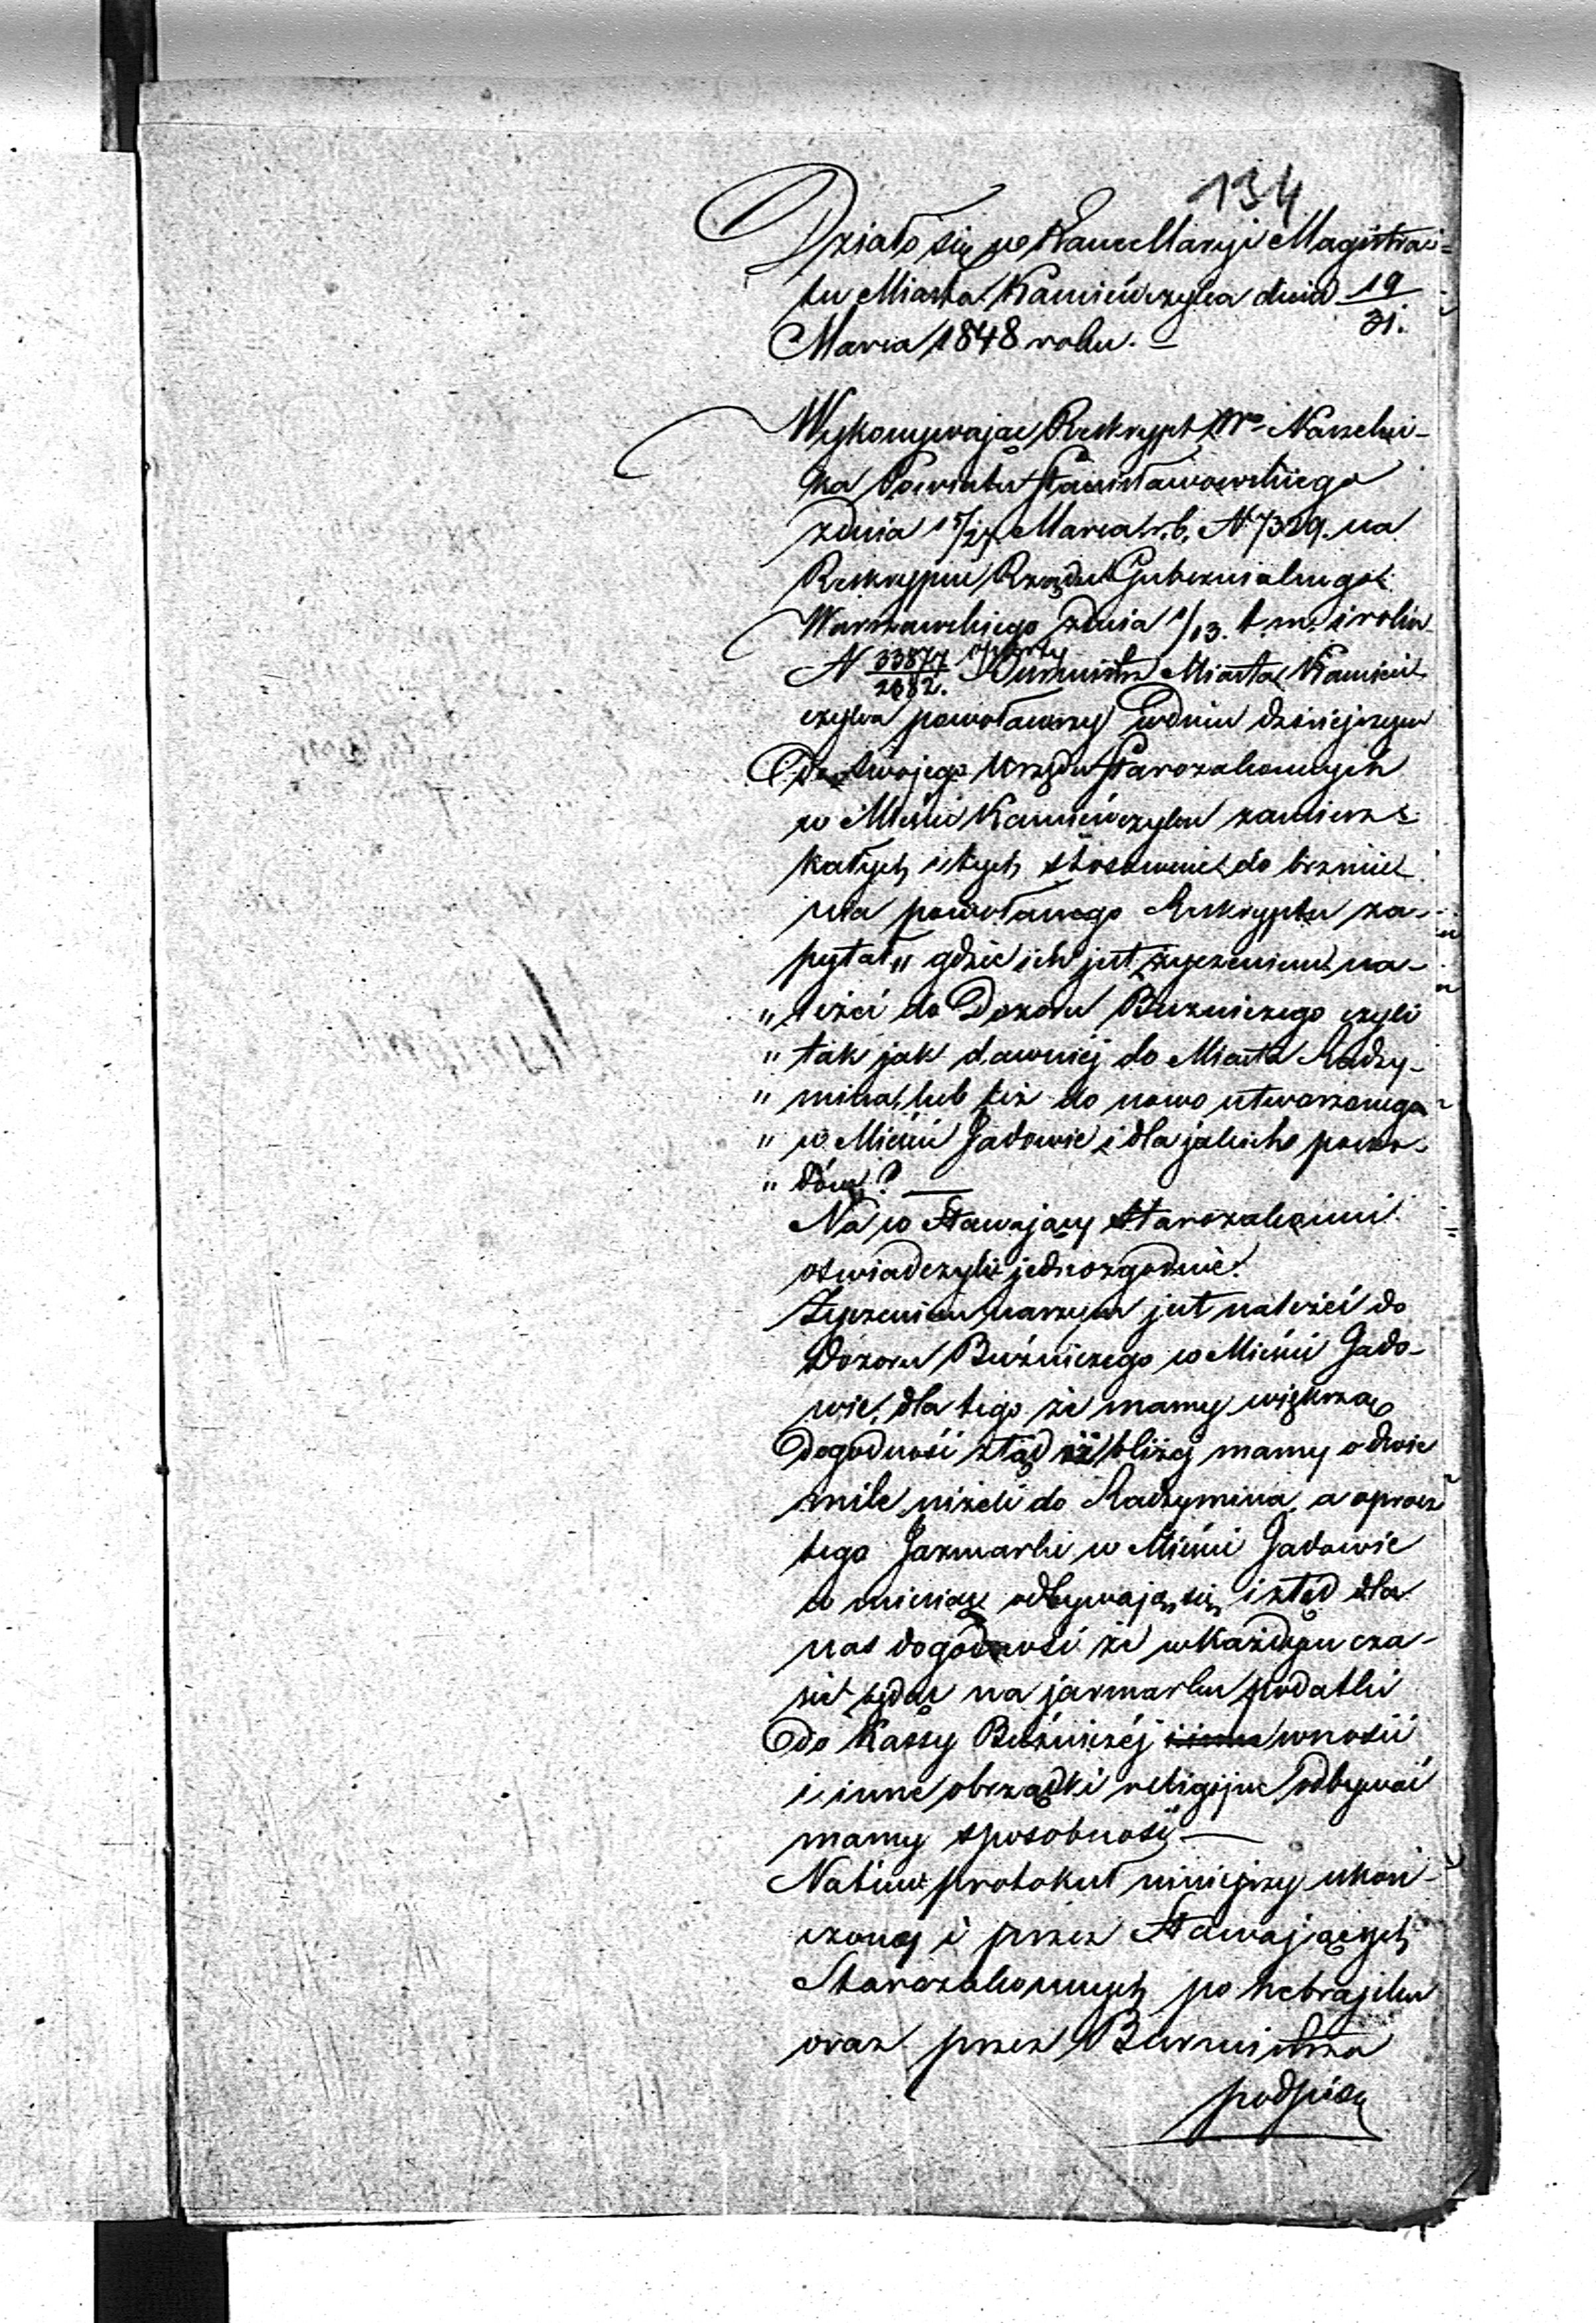 134
Działo się w Kancellaryi Magistra-
tu Miasta Kamieńczyka dnia 19/31.
Marca 1848 roku. —
Wykonywając Reskrypt Wo Naczelni-
ka Powiatu Stanisławowskiego
z dnia 15/27 Marca r. b. N 7329. na
Reskrypcie Rządu Gubernialnego
Warszawskiego z dnia 1/13. t. m. i roku
N 33877/2682. oparty Burmistrz Miasta Kamień
czyka powoławszy w dniu dzisiejszym
do swojego Urzędu Starozakonnych
w Mieście Kamieńczyku zamiesz
kałych i tych stosownie do brzmie
nia powołanego Reskryptu za-
pytał „ gdzie ich jest życzeniem na-
„ leżeć do Dozoru Bużniczego czyli
„ tak jak dawniej do Miasta Radzy-
„ mina, lub też do nowo utworzonego
„ w Mieście Jadowie i dla jakich powo-
„ dów? —
Na co Stawający Starozakonni
oswiadczyli jednozgodnie:
Życzeniem naszym jest należeć do
Dozoru Bużniczego w Mieście Jado-
wie, dla tego że mamy większą
dogodność ztąd iż bliżej mamy o dwie
mile niżeli do Radzymina, a oprócz
tego Jarmarki w Mieście Jadowie
w miesiąc odbywają się, i ztąd dla
nas dogodność że w każdym cza-
sie będąc na jarmarku podatki
do Kassy Bużniczéj i inne wnosić
i inne obrządki religijne odbywać
mamy sposobność —
Na tém protokuł niniejszy ukoń-
czony i przez Stawających
Starozakonnych po hebrajsku
oraz przez Burmistrza
podpisany